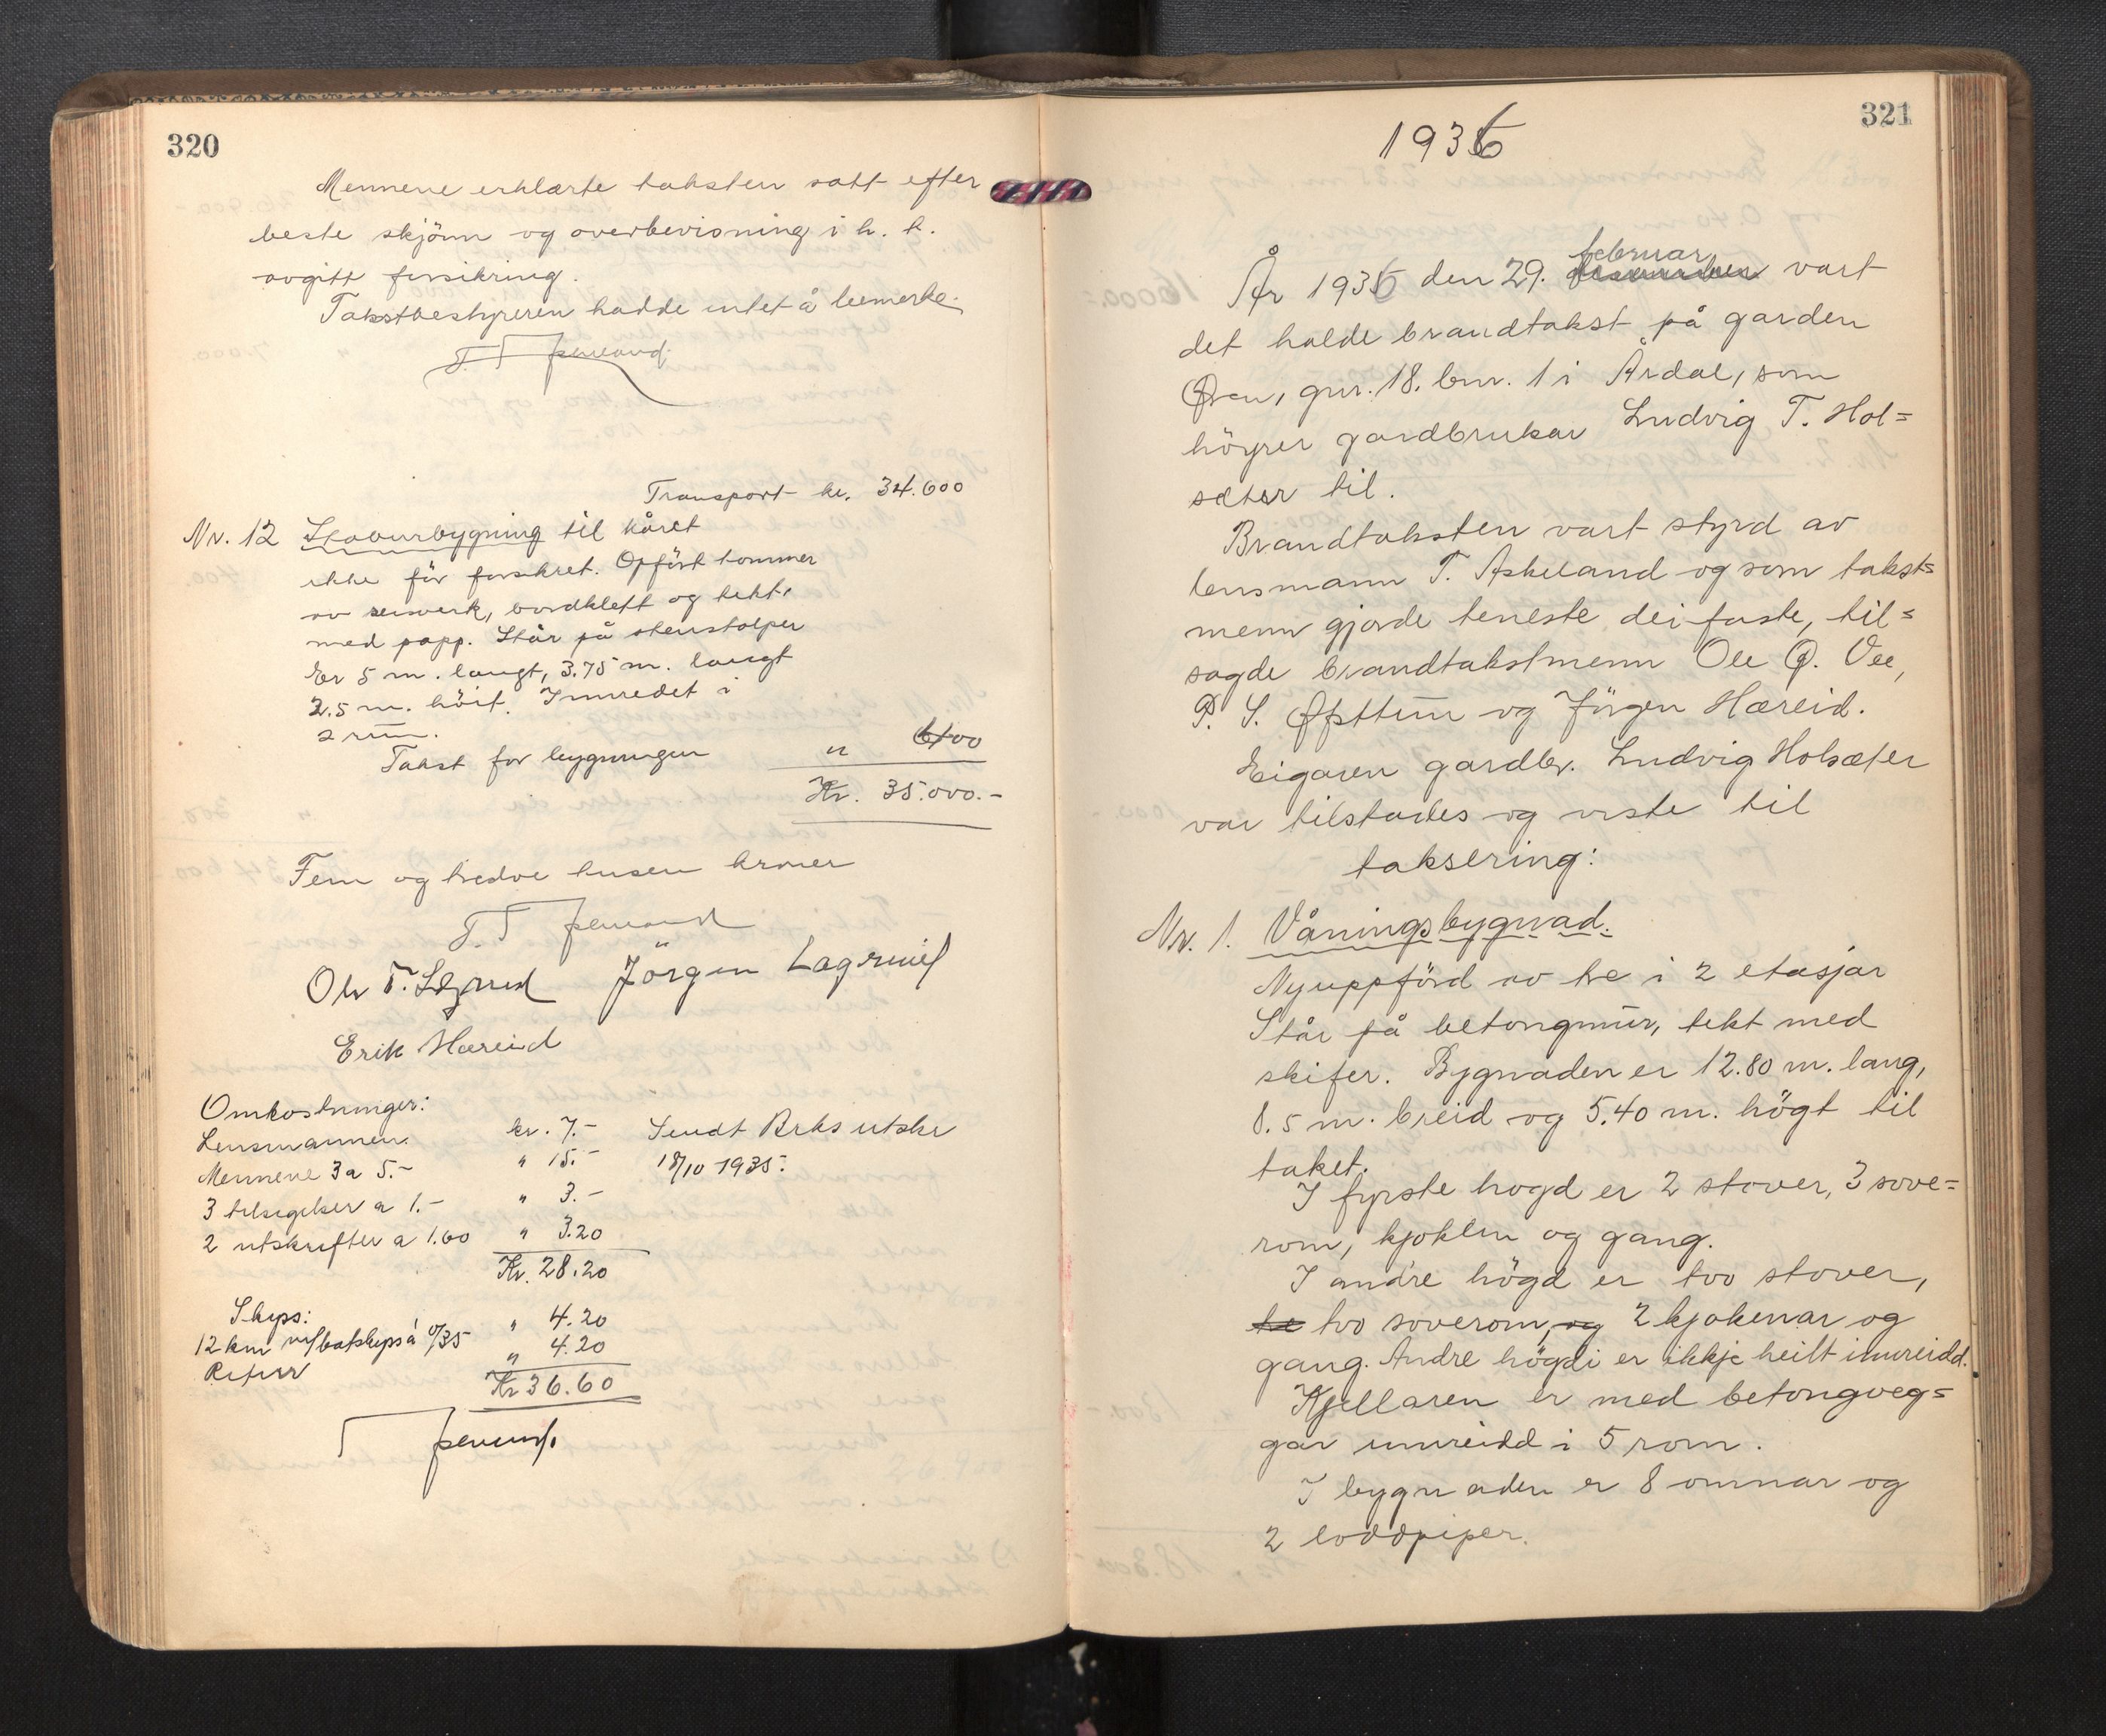 320
Mennene erklærte taksten satt efter
beste skjönn og overbevisning i h. t.
avgitt forsikring.
Takstbestyreren hadde intet å bemerke.
Transport kr. 34.600
Nr. 12 Stabursbygning til kåret
ikke för forsikret. Opfört tommer
av reisverk, bordklett og tekt
med papp. Står på stenstolper
Er 5 m. langt, 3.75 m. langt
2.5 m. höit. Innredet i
2 rum.
Takst for bygningen " 400
Kr. 35.000.-
Fem og tredve tusen kroner
Ole T. Jörgen
Erik Hæreid
Omkostninger:
Lensmannen kr. 7.- Sendt Brks utskr
Mennene 3 a 5.- " 15.- 18/10 1935.
3 tilsigelser a 1.- " 3.-
2 utskrifter a 1.60 " 3.20
Kr. 28.20
Skyss:
12 km m/båtskyss á 0/35 " 4.20
Retur " 4.20
Kr 36.60
321
1936
År 1936 den 29. februar vart
det halde brandtakst på garden
Øren, gnr. 18. bnr. 1 i Årdal, som
höyrer gardbrukar Ludvig T. Hol=
sæter til.
Brandtaksten vart styrd av
lensmann T. Askeland og som takst=
menn gjorde teneste dei faste, til=
sagde brandtakstmenn Ole O. Vee,
P. S. Øfsttun og Jörgen Hæreid.
Eigaren gardbr. Ludvig Holsæter
var tilstades og viste til
taksering:
Nr. 1. Våningsbygnad.
Nyuppförd av tre i 2 etasjar
Står på betongmur, tekt med
skifer. Bygnaden er 12.80 m. lang,
8.5 m. breid og 5.40 m. högt til
taket.
I fyrste hogd er 2 stover, 3 sove=
rom, kjøken og gang.
I andre högd er tvo stover,
tre tvo soverom, og 2 kjokenar og
gang. Andre högdi er ikkje heilt innreidd.
Kjellaren er med betongveg=
gar innreidd i 5 rom.
I bygnaden er 8 omnar og
2 loddpiper.